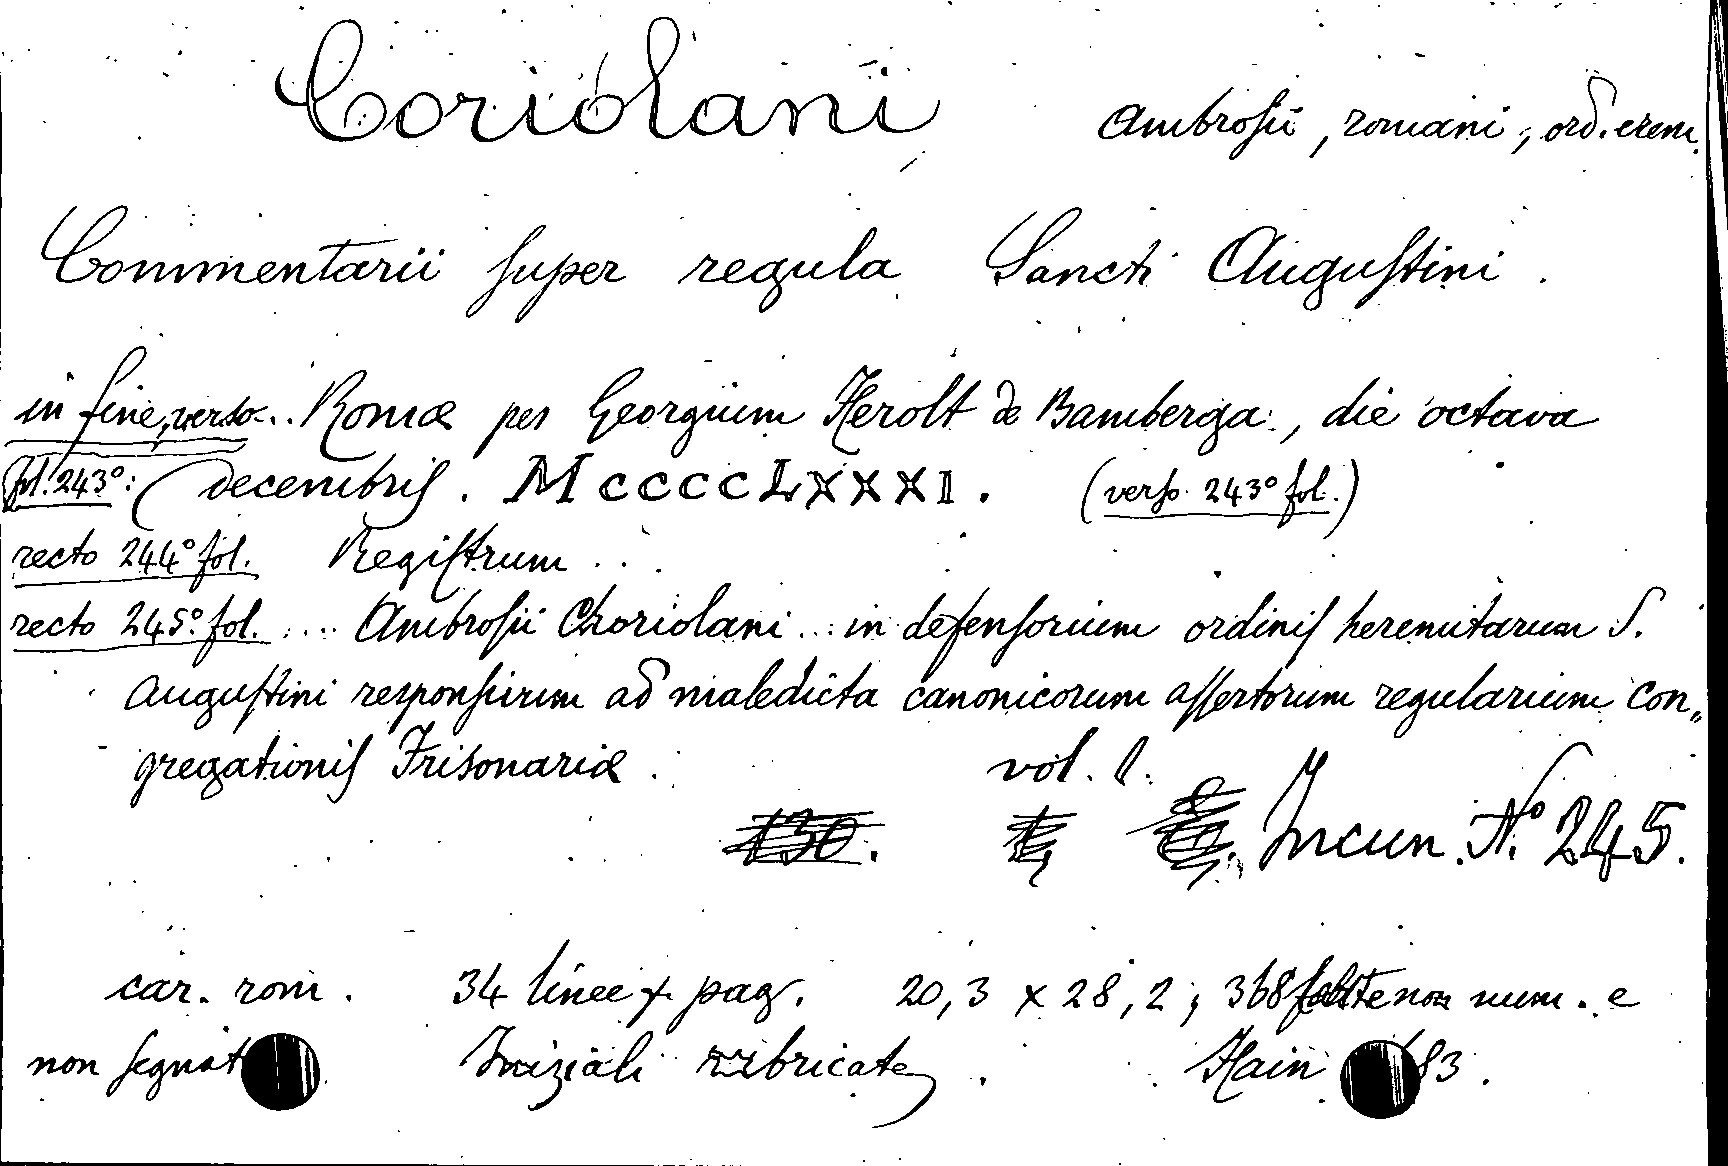 Coriolani Ambrosii, romani, ord. erem.
Commentarii super regula Sancti Augustini.
in fine, verso... Romæ per Georgium Herolt de Bamberga:, die octava
fol. 243°: decembris. MCCCCLXXXI. (verso 243° fol.)
recto 244° fol. Registrum...
recto 245° fol. .... Ambrosii Choriolani... in defensorium ordinis heremitarum S.
Augustini responsivum ad maledicta canonicorum assertorum regularium con„
gregationis Frisonariæ. vol. 1.
130. Incun. N.° 245.
car. rom. 34 linee x pag. 20,3 x 28,2; 368 non num. e
non segnat Iniziali rubricate. Hain 83.